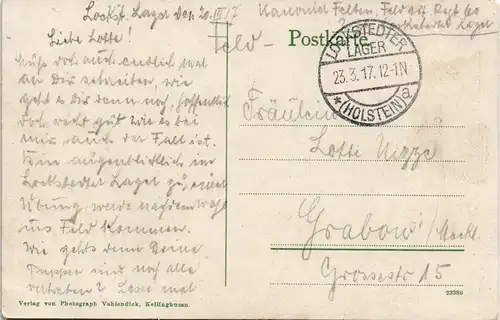 Lockst. Lager den 20/III 17
Kanonier Felten, Feld art. Regt 60
Lockstedter Lager
Feld-
Postkarte
LOCKSTEDTER
LAGER
23.3.17.12-1N
* (HOLSTEIN) a
Liebe Lotte!
Muß doch auch endlich mal
an Dir schreiben, wie
geht es Dir denn noch, hoffentlich
doch recht gut wie es bei
mir auch der Fall ist.
Bin augenblicklich im
Lockstedter Lager zu einer
Übung, werde nachdem wohl
ins Feld kommen.
Wie gehts denn Deine
Puppen sind noch alle
vertreten? Lass mal
Fräulein
Lotte
Grabow/Meckl.
Grossestr 15
Verlag von Photograph Vahlendick, Kellinghusen.
23380